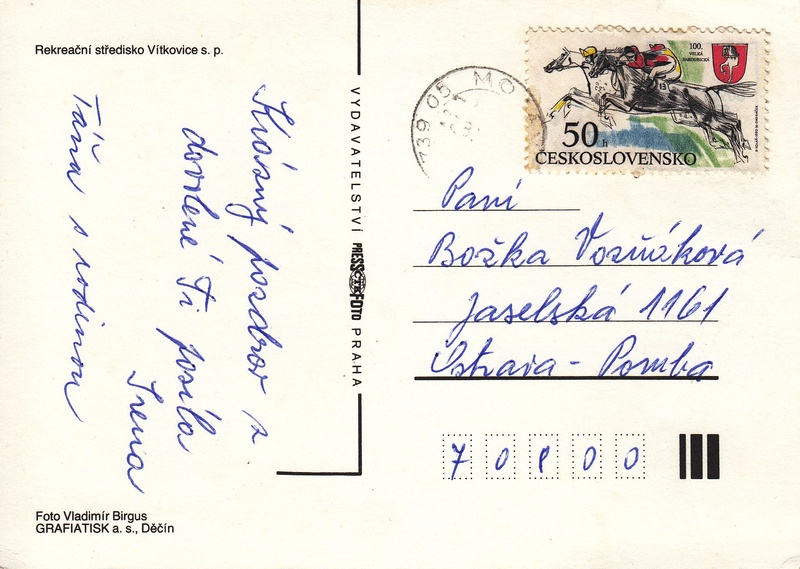 Rekreační středisko Vítkovice s. p.
Krásný pozdrav z
dovolené Ti posíla
Irena
Táňa s rodinou
Foto Vladimír Birgus
GRAFIATISK a. s., Děčín
VYDAVATELSTVÍ PRESSFOTO PRAHA
739 05 MO
100.
VELKÁ
PARDUBICKÁ
50 h
ČESKOSLOVENSKO
Paní
Božka Vozňáková
Jaselská 1161
Ostrava - Poruba
70800